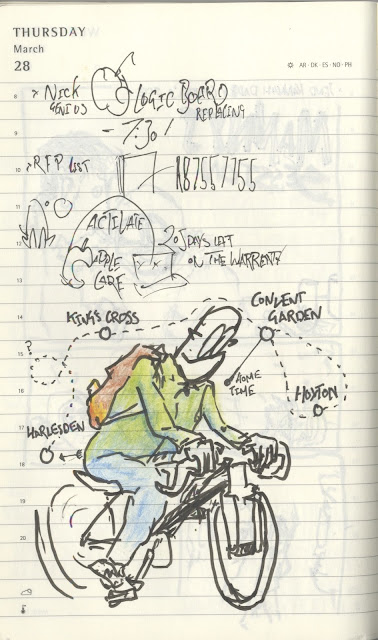 THURSDAY
March
28
AR · DK · ES · NO · PH
NICK
GENIUS
LOGIC BOARD
REPLACING
7:30
RFP LIST
R87557755
ACTIVATE
APPLE
CARE
205 DAYS LEFT
ON THE WARRENTY
KING'S CROSS
COVENT
GARDEN
?
HOME
TIME
HOXTON
HARLESDEN
8
9
10
11
12
13
14
15
16
17
18
19
20